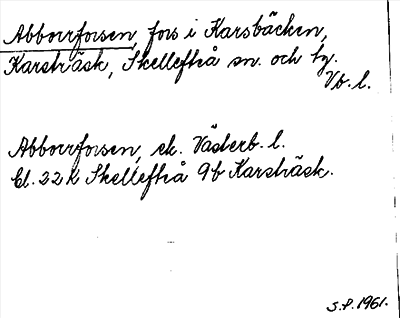 Abborrforsen, fors i Karsbäcken,
Karsträsk, Skellefteå sn. och tg.
Vb. l.
Abborrforsen, ek. Västerb. l.
Bl. 22 K Skellefteå 9b Karsträsk.
S.P. 1961.